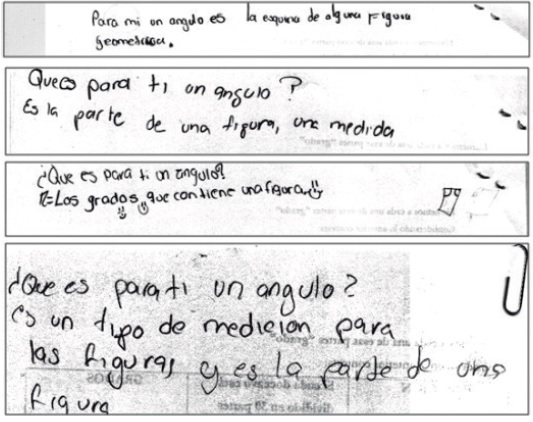 Para mi un angulo es la esquina de alguna figura
geometrica.
Que es para ti un angulo?
Es la parte de una figura, una medida
¿Que es para ti un angulo?
R=Los grados que contiene una figura
¿Que es para ti un angulo?
es un tipo de medicion para
las figuras y es la parte de una
figura